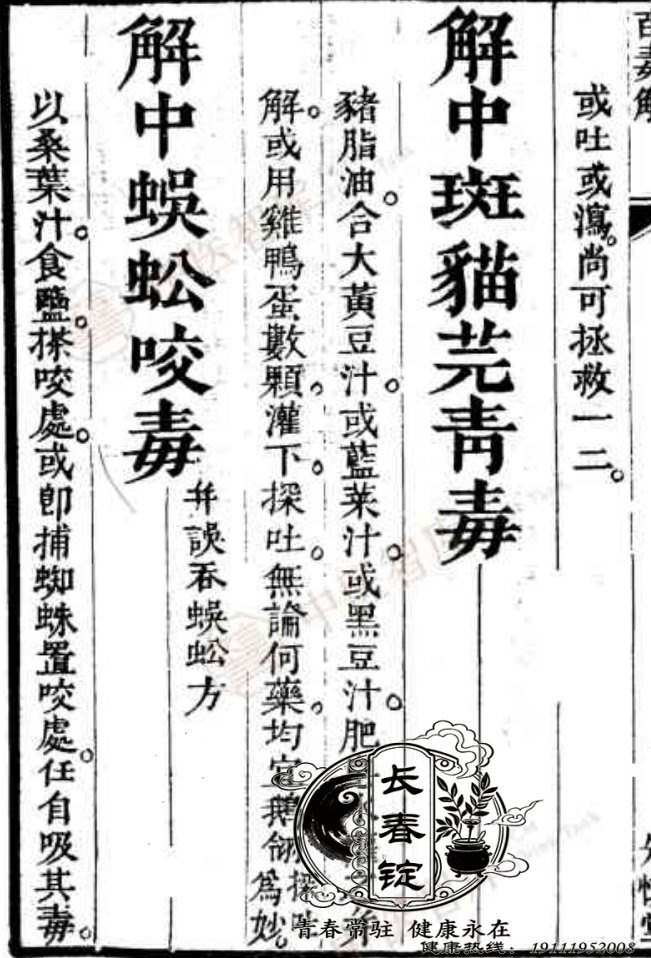 百毒解
或吐或瀉。尚可拯救一二。
解中斑貓芫青毒
豬脂油。合大黃豆汁。或藍葉汁。或黑豆汁。肥
解。或用雞鴨蛋數顆。灌下。探吐。無論何藥。均宜鵝翎探吐為妙。
解中蜈蚣咬毒
并誤吞蜈蚣方
以桑葉汁。食鹽。搽咬處。或卽捕蜘蛛置咬處。任自吸其毒。
长春锭
青春常驻 健康永在
健康热线：19111952008